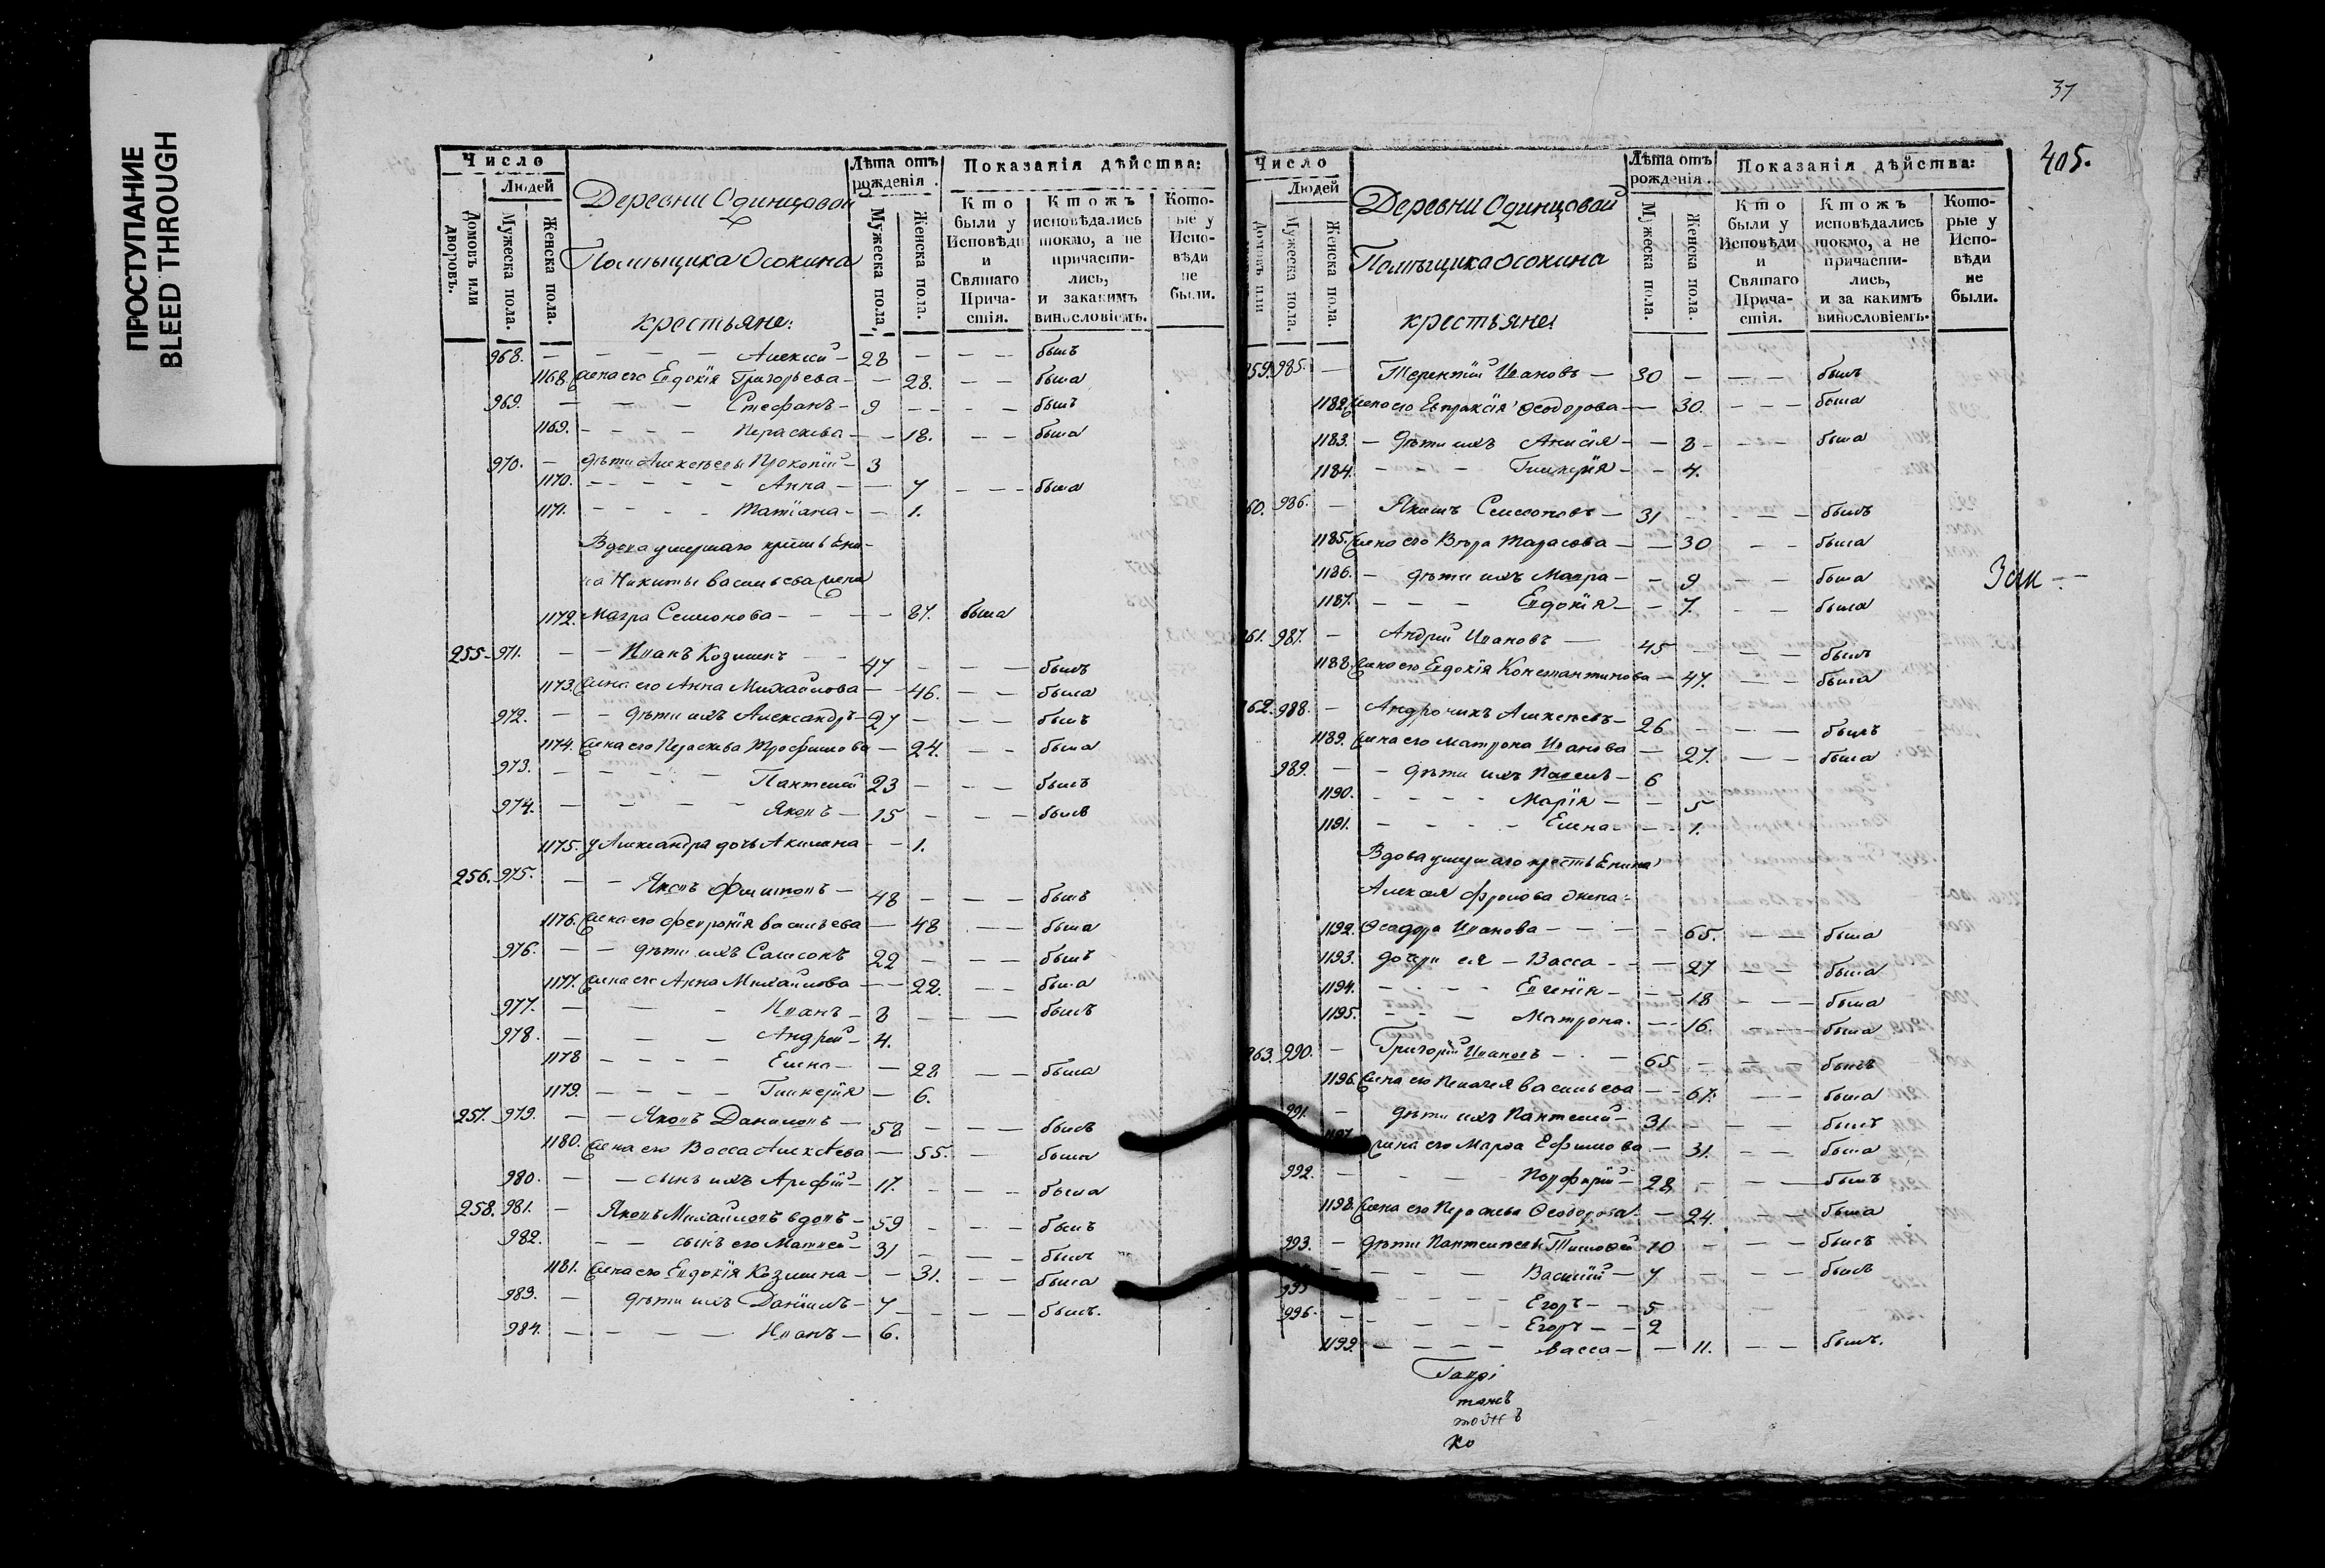 ПРОСТУПАНИЕ
BLEED THROUGH
Число
Людей
Домовъ или дворовъ.
Мужеска пола.
Женска пола.
Деревни Одинцовой
Помѣщика Осокина
крестьяне:
Лѣта отъ рожденія.
Мужеска пола.
Женска пола.
Показанія дѣйства:
Кто были у Исповѣди и Святаго Прича-стія.
Ктожъ исповѣдались токмо, а не причасти-лись, и закакимъ винословіемъ.
Кото-рые у Испо-вѣди не были.
968. — — — — Алексѣй — 28 — — — былъ
1168. жена его Евдокія Григорьева — — 28. — — была
969. — — — Стефанъ — 9 — — — — былъ
1169. — — — — Параскева — — 18. — — была
970. — дѣти Алексѣевы Прокопій — 3
1170. — — — — Анна — — 7 — — — была
1171. — — — — Татіана — — 1.
Вдова умершаго крестьени-
на Никиты Васильева жена
1172. Мавра Семионова — — — — 87. была
255. 971. — — Иванъ Козминъ — — 47 — — — былъ
1173. жена его Анна Михайлова — — 46. — — была
972. — — дѣти ихъ Александръ — 27 — — — былъ
1174. жена его Параскева Трофимова — 24. — — была
973. — — — — Пантелей 23 — — — былъ
974. — — — — Яковъ — 15 — — — былъ
1175. у Александра дочь Акилина — — 1.
256. 975. — — Яковъ Филиповъ — 48 — — — былъ
1176. жена его Февронія Васильева — 48 — — была
976. — — дѣти ихъ Самсонъ 22 — — — былъ
1177. жена его Анна Михайлова — — 22. — — была
977. — — — Иванъ — 8 — — — былъ
978. — — — Андрей — 4.
1178 — — — — Елена — — 28 — — была
1179. — — — — Гликерія — 6.
257. 979. — — Яковъ Даниловъ — 58 — — — былъ
1180. жена его Васса Алексѣева — 55. — — была
980. — — сынъ ихъ Арефій — 17. — — — была
258. 981. — Яковъ Михайловъ вдовъ — 59 — — — былъ
982. — — сынъ его Матвей — 31 — — — былъ
1181. жена его Евдокія Козмина — — 31. — — была
983. — дѣти ихъ Даніилъ — 7 — — — — былъ.
984. — — — — Иванъ — 6.
37
405.
Число
Людей
Домовъ или
Мужеска пола.
Женска пола.
Деревни Одинцовой
Помѣщика Осокина
крестьяне:
Лѣта отъ рожденія.
Мужеска пола.
Женска пола.
Показанія дѣйства:
Кто были у Исповѣди и Святаго Прича-стія.
Ктожъ исповѣдались токмо, а не причасти-лись, и за какимъ винословіемъ.
Кото-рые у Испо-вѣди не были.
259. 985. — Терентій Ивановъ — 30 — — — былъ
1182. жена его Евпраксія Ѳеодорова — 30. — — — была
1183. — дѣти ихъ Анисія — — 8 — — — была
1184. — — — Гликерія — — 4.
60. 986. — Якимъ Семионовъ — 31 — — — былъ
1185. жена его Вѣра Тарасова — — 30 — — была
1186. — дѣти ихъ Мавра — — 9 — — была
1187. — — — Евдокія — — 7. — — была
61. 987. — Андрей Ивановъ — 45 — — — былъ
1188. жена его Евдокія Константинова — 47. — — была
62. 988. — Андроникъ Алексѣевъ — 26 — — — былъ
1189. жена его Матрона Иванова — 27. — — была
989. — — дѣти ихъ Павелъ — 6
1190. — — — — Марія — — 5
1191. — — — — Елена — — 1.
Вдова умершаго крестьенина
Алексея Фролова жена:
1192. Ѳеодора Иванова — — — — 65. — — была
1193. дочери ея — Васса — — — 27 — — была
1194. — — — — Евгенія — — 18 — — — была
1195. — — — Матрона — — 16. — — — была
263. 990. — Григорій Ивановъ — — 65 — — — былъ
1196. жена его Пелагея Васильева — — 67. — — была
991. — дѣти ихъ Пантелей — 31 — — — былъ
1197. жена его Марѳа Ефимова — 31. — — была
992. — — — — Порфирій — 28 — — — былъ
1198. жена его Параскева Ѳеодорова — — 24. — — была
993. — дѣти Пантелѣевы Тимоѳей 10 — — — былъ
— — — — Василій — 7 — — — былъ
995 — — — — Егоръ — — 5
996. — — — — Егоръ — — 2
1199. — — — — Васса — — 11. — — былъ.